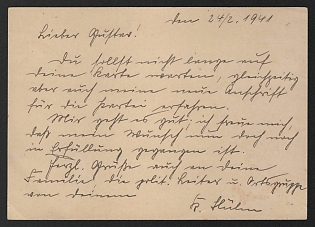 den 24/2. 1941
Lieber Gustev!
Du sollst nicht lange auf
deine Karte warten, gleichzeitig
aber auch meine neue Anschrift
für die Partei erfahren.
Mir geht es gut, ich freue mich,
daß mein Wunsch nun doch noch
in Erfüllung gegangen ist.
Herzl. Grüße auch an deine
Familie die polit. Leiter u. Ortsgruppe
von deinem